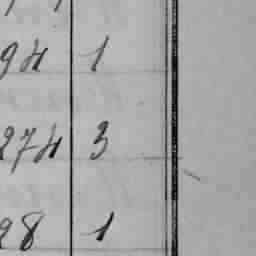 94 1
274 3
28 1